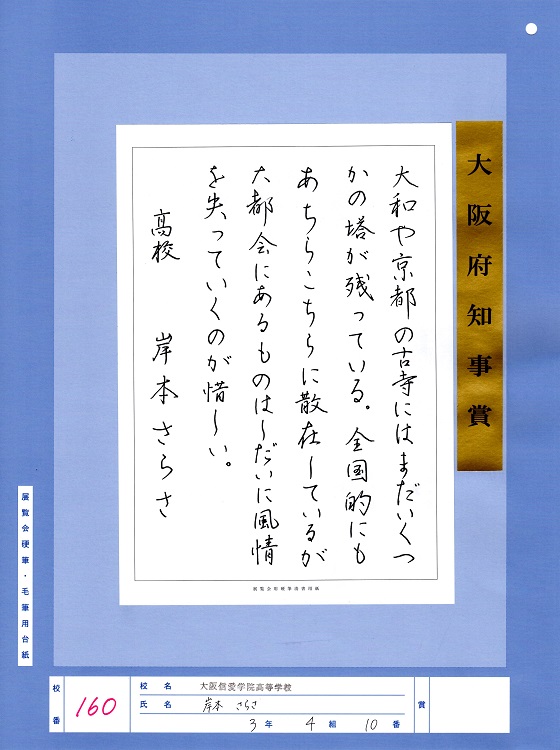 大阪府知事賞
大和や京都の古寺にはまだいくつ
かの塔が残っている。全国的にも
あちらこちらに散在しているが
大都会にあるものはしだいに風情
を失っていくのが惜しい。
高校 岸本さらさ
展覧会用硬筆清書用紙
展覧会硬筆・毛筆用台紙
校番 160
校名 大阪信愛学院高等学校
氏名 岸本 さらさ
3年 4組 10番
賞